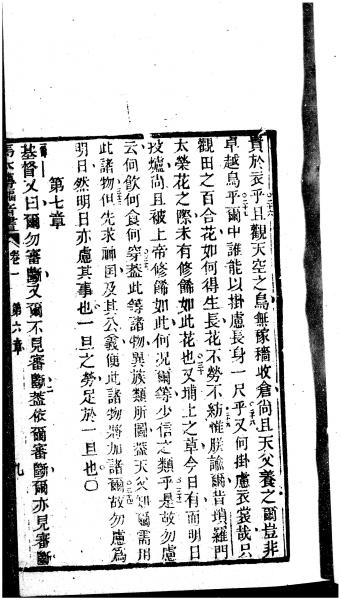 貴於衣乎且觀天空之鳥無稼穡收倉尚且天父養之爾豈非
卓越鳥乎爾中誰能以掛慮長身一尺乎又何掛慮衣裳哉只
觀田之百合花如何得生長花不勞不紡惟朕諭爾昔瑣羅門
太榮花之際未有修餙如此花也又埔上之草今日有而明日
投爐尚且被上帝修餙如此何況爾等少信之類乎是故勿慮
云何飲何食何穿蓋此等諸物異族類所圖蓋天父知爾需用
此諸物但先求神國及其公義便此諸物將加諸爾故勿慮為
明日然明日亦慮其事也一旦之勞足於一旦也〇
第七章
基督又曰爾勿審斷又爾不見審斷蓋依爾審斷爾亦見審斷
卷一 第六章 九